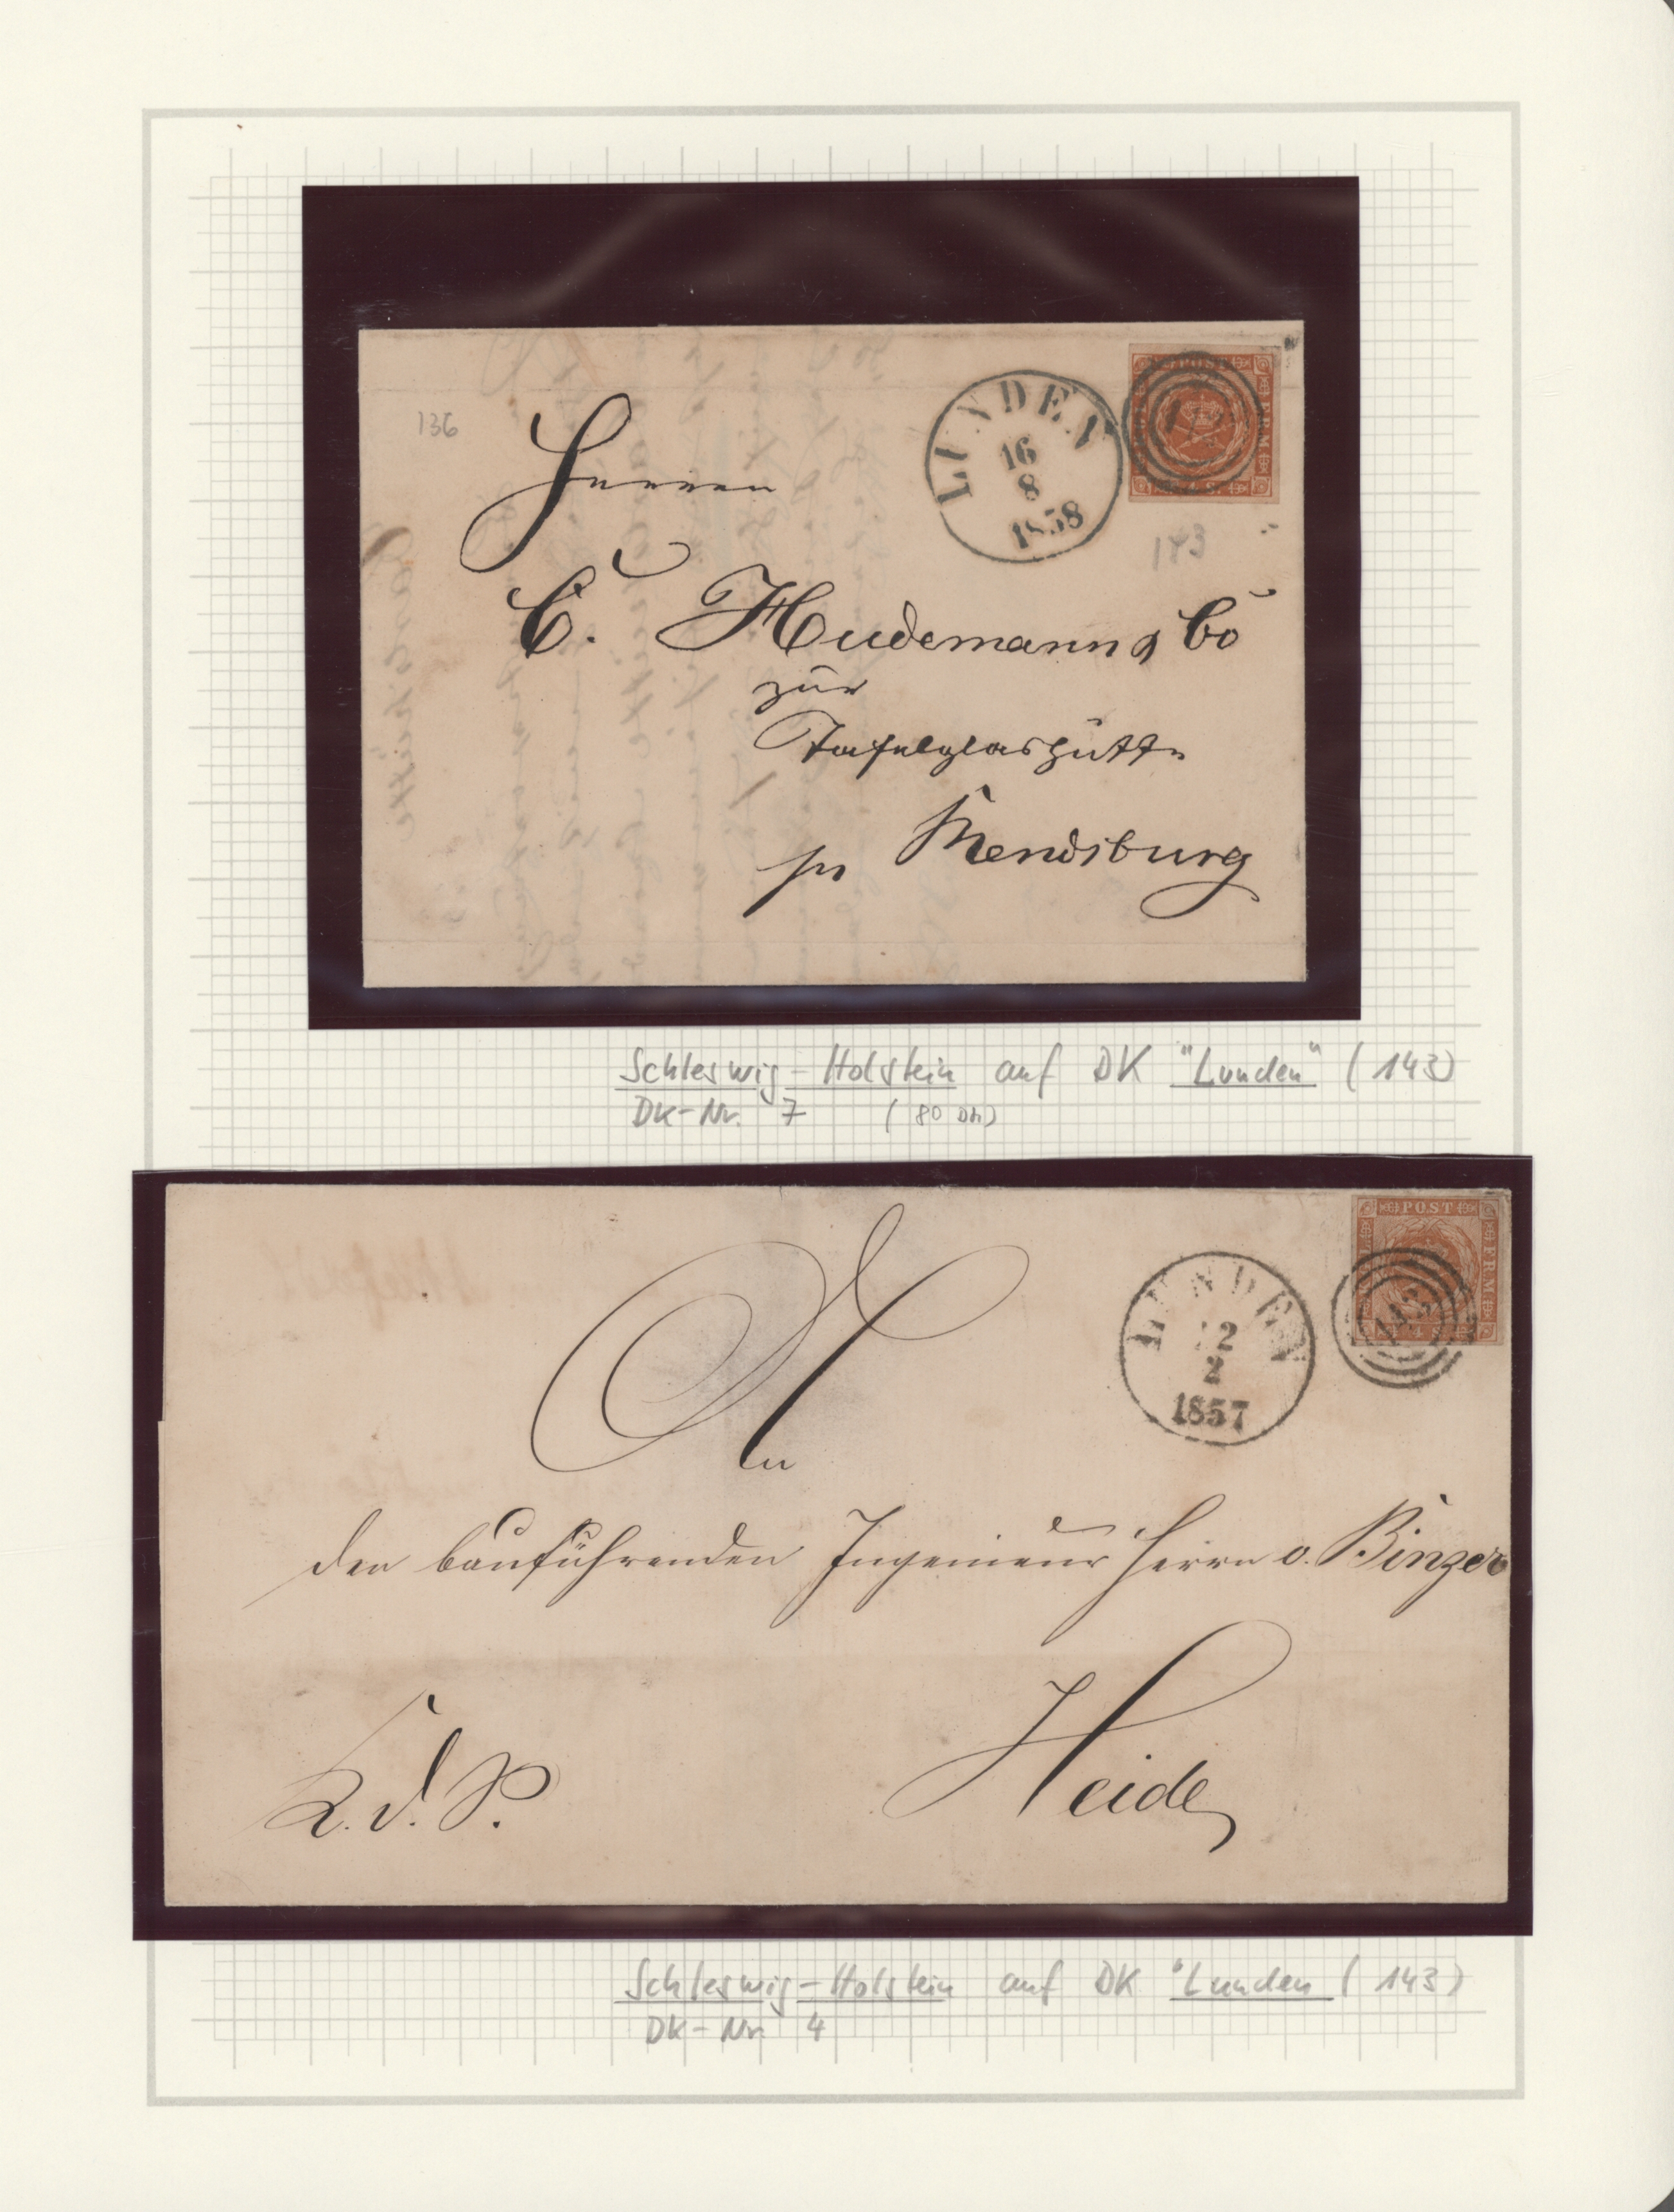 136
LUNDEN
16
8
1858
POST
FRM
143
Herren
C. Hudemann & Co
zur
Tafelglashütte
pr Rendsburg
Schleswig-Holstein auf DK "Lunden" (143)
DK-Nr. 7 (80 DM)
POST
FRM
LUNDEN
2
1857
143
An
den bauführenden Ingenieur Herrn v. Binzer
K. d. P.
Heide
Schleswig-Holstein auf DK "Lunden (143)
DK-Nr. 4